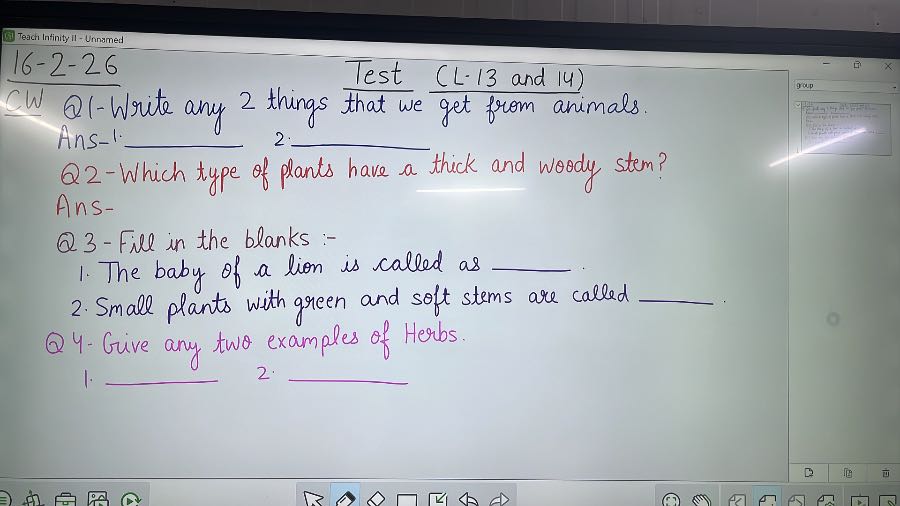 Teach Infinity II - Unnamed
16-2-26
Test (L-13 and 14)
CW Q1-Write any 2 things that we get from animals.
Ans-1. __________ 2. __________
Q2-Which type of plants have a thick and woody stem?
Ans-
Q3-Fill in the blanks :-
1. The baby of a lion is called as ________.
2. Small plants with green and soft stems are called ________.
Q4-Give any two examples of Herbs.
1. __________ 2. __________
group